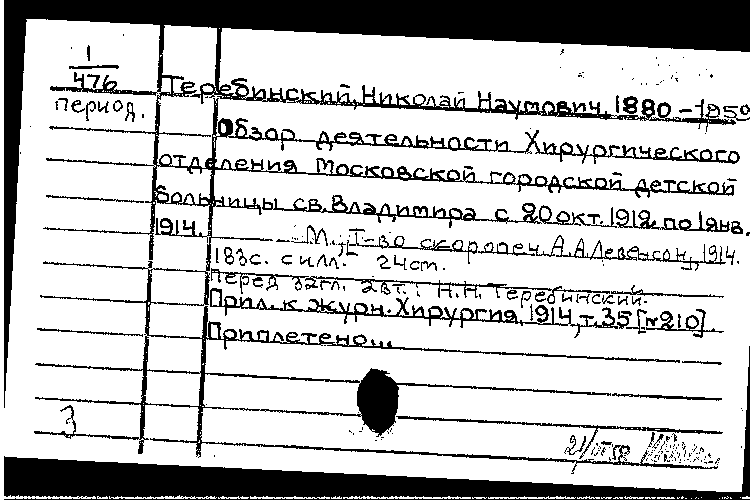 1
476
период.
Теребинский, Николай Наумович, 1880 – 1959
Обзор деятельности Хирургического
отделения Московской городской детской
больницы св. Владимира с 20 окт. 1912 по 1 янв.
1914.
М., Т-во скоропеч. А.А.Левенсон, 1914.
183с. с илл. 24см.
Перед загл. авт.: Н.Н.Теребинский.
Прил. к журн. Хирургия, 1914, т.35 [№210]
Приплетено...
3